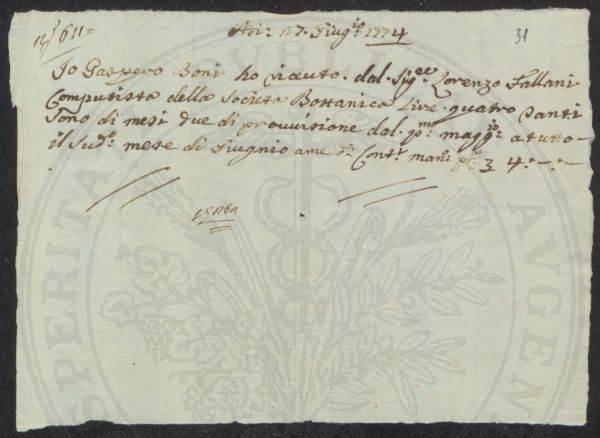 611=
Adi: 27. Giug:o 1774
31
Io Gaspero Boni ho riceuto. dal. Sig:re Lorenzo Fallani
Computista della Societa Bottanica Lire. quatro Santi
Sono di mesi due di provvisione dal. p:mo magg:o atutto-
il Sud:o mese di Giugnio ame d:o Cont:i man:i 4.-.-
PROSPERITATI PUBLICAE AUGENDAE